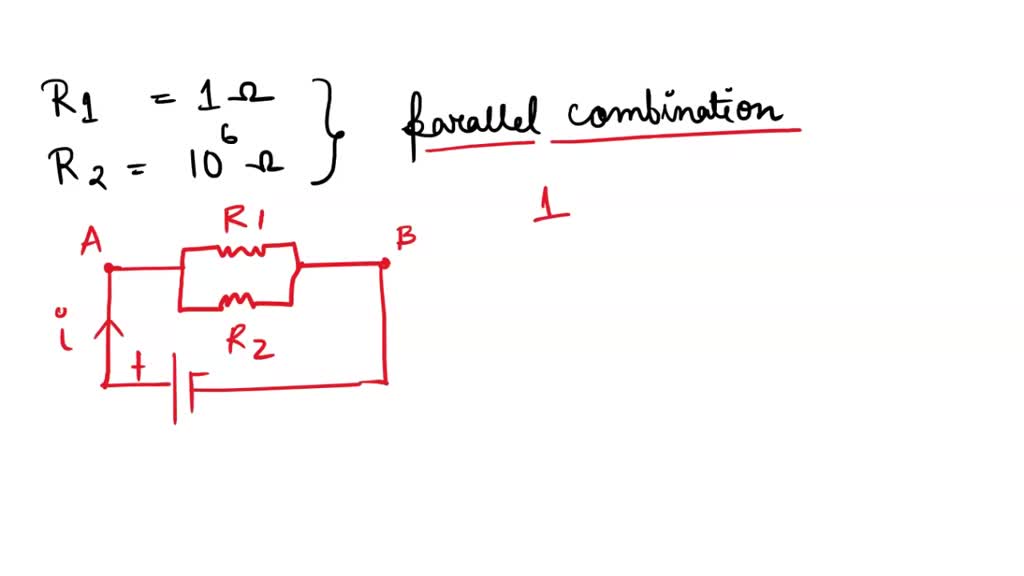 R1 = 1 Ω
R2 = 10⁶ Ω
parallel combination
1
A
R1
B
i
R2
+